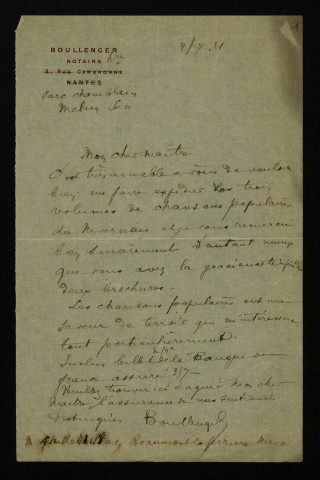 BOULLENGER
NOTAIRE Hre
3, RUE CAMBRONNE
NANTES
8/7.31
1
Parc chamblain
Melun
Mon cher maitre
C'est très aimable à vous de vouloir
bien me faire expédier vos trois
volumes de chansons populaires
du Nivernais et je vous remercie
bien sincèrement d'autant mieux
que vous avez la gracieuseté
deux brochures.
Les chansons populaires ont une
saveur de terroir qui m'intéresse
tout particulièrement.
Inclus billet de la Banque de
france assuré 3/7 —
Veuillez trouver ici
maitre, l'assurance de mes sentiments
distingués Boullenger
Beaumont la ferriere